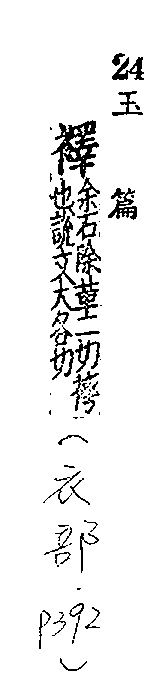 24
玉篇
襗
余石除二切袴
也說文大各切
(衣部.p392)